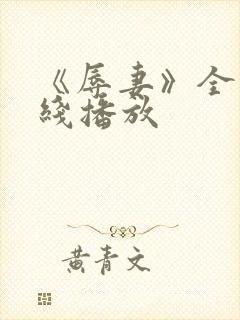 《辱妻》全
线播放
黄青文